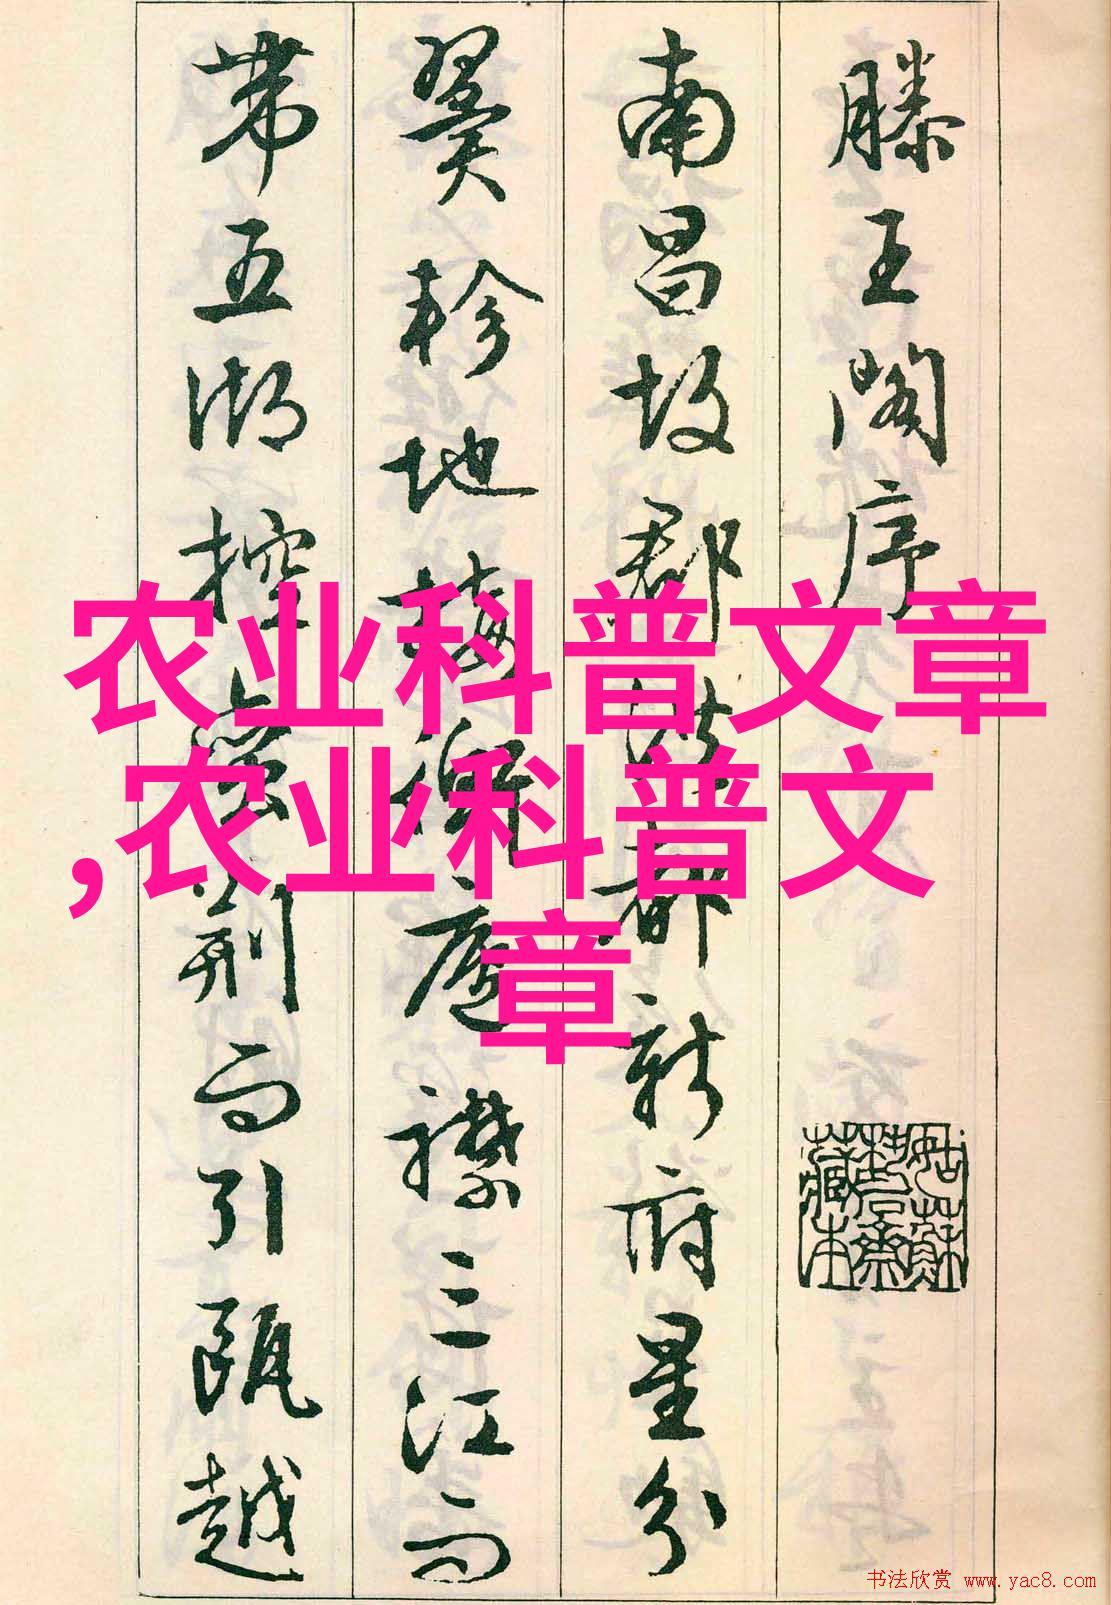 滕王閣序
南昌故郡洪都新府星分
翼軫地接衡廬襟三江而
帶五湖控蠻荊而引甌越
农业科普文章
,农业科普文
章
书法欣赏 www.yac8.com